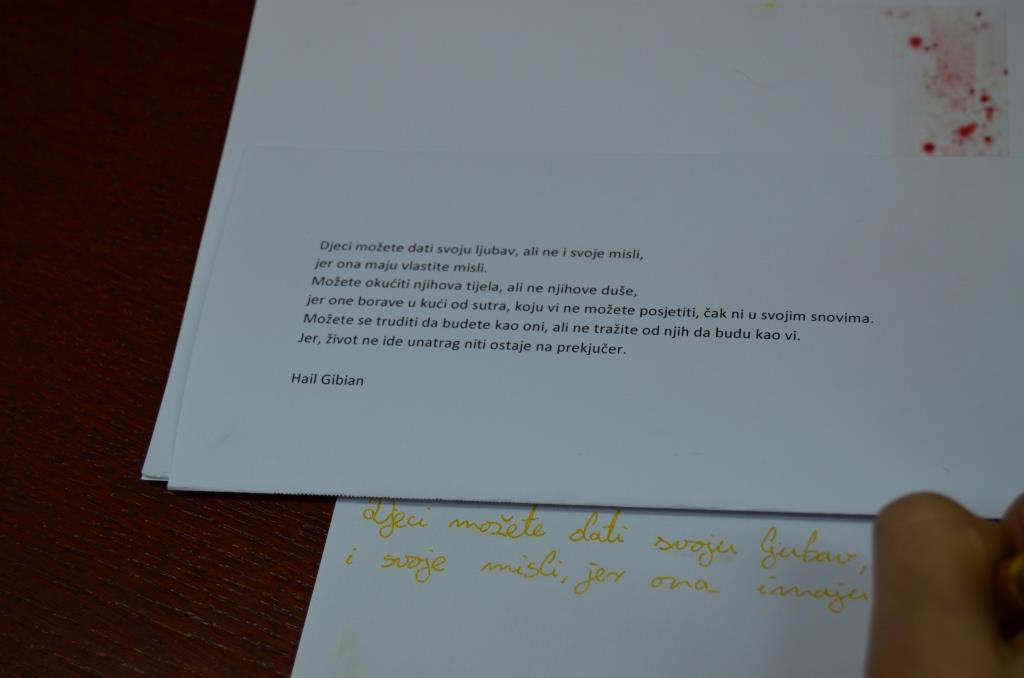 Djeci možete dati svoju ljubav, ali ne i svoje misli,
jer ona maju vlastite misli.
Možete okućiti njihova tijela, ali ne njihove duše,
jer one borave u kući od sutra, koju vi ne možete posjetiti, čak ni u svojim snovima.
Možete se truditi da budete kao oni, ali ne tražite od njih da budu kao vi.
Jer, život ne ide unatrag niti ostaje na prekjučer.
Hail Gibian
Djeci možete dati svoju ljubav,
i svoje misli, jer ona imaju